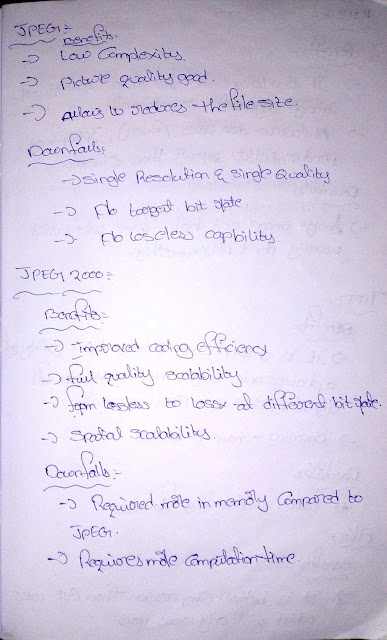 JPEG:=
Benefits:
-> Low Complexity.
-> Picture quality good.
-> Allows to reduces the file size.
Downfalls:
-> Single Resolution & Single Quality
-> No target bit rate
-> No lossless capbility.
JPEG 2000:=
Benefits:=
-> improved coding efficiency
-> full quality scalability
-> from lossless to lossy at different bit rate.
-> Spatial scalability.
Downfalls:=
-> Required more in memory Compared to
JPEG.
-> Requires more Computation time.